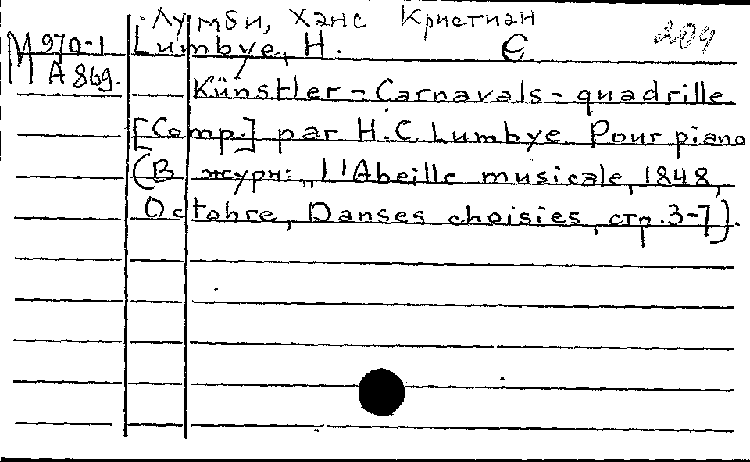 Лумби, Ханс Кристиан
209
М 970-1
Lumbye, H. C
А 869.
Künstler - Carnavals - quadrille
[Comp.] par H. C. Lumbye. Pour piano
(В журн: „L'Abeille musicale, 1848,
Octobre, Danses choisies, стр. 3-7).